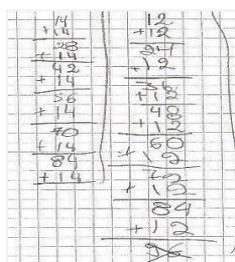 14
+ 14
28
+ 14
42
+ 14
56
+ 14
70
+ 14
84
+ 14
12
+ 12
24
+ 12
+ 12
48
+ 12
60
+ 12
72
+ 12
84
+ 12